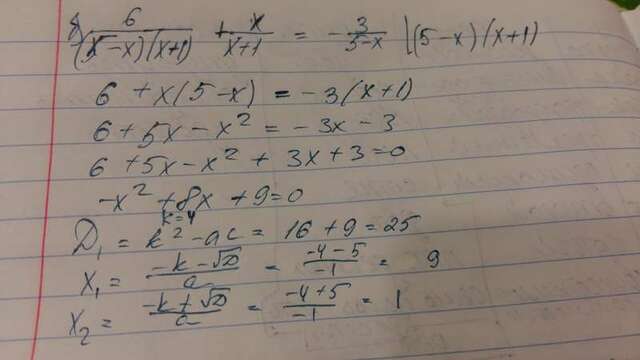 8) 6/((5-x)(x+1)) + x/(x+1) = -3/(5-x) |(5-x)(x+1)
6 + x(5-x) = -3(x+1)
6 + 5x - x² = -3x - 3
6 + 5x - x² + 3x + 3 = 0
-x² + 8x + 9 = 0
k=4
D₁ = k² - ac = 16 + 9 = 25
x₁ = (-k-√D)/a = (-4-5)/(-1) = 9
x₂ = (-k+√D)/a = (-4+5)/(-1) = 1